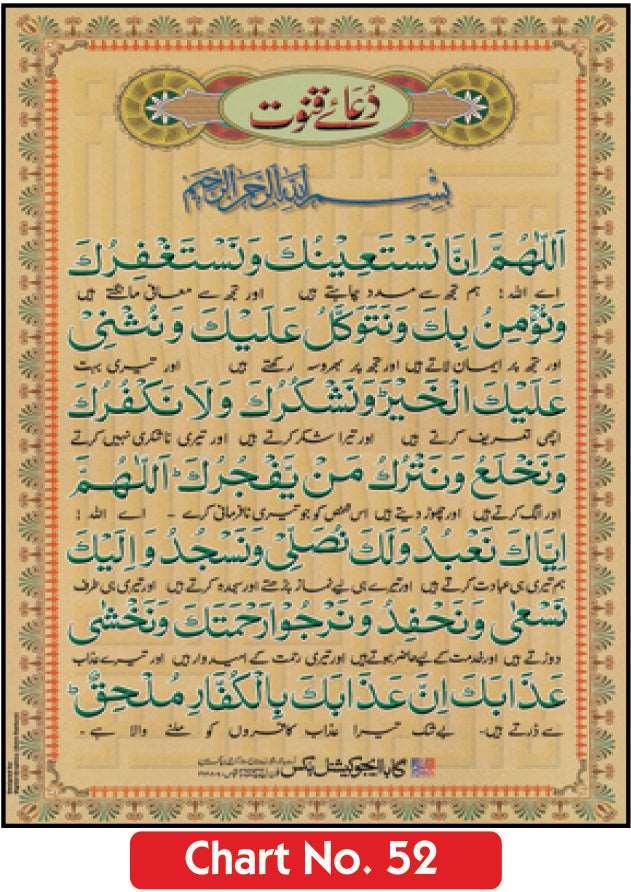 دُعائے قنوت
بِسْمِ اللهِ الرَّحْمٰنِ الرَّحِيْمِ
اَللّٰهُمَّ اِنَّا نَسْتَعِيْنُكَ وَنَسْتَغْفِرُكَ
اے اللہ! ہم تجھ سے مدد چاہتے ہیں اور تجھ سے معافی مانگتے ہیں
وَنُؤْمِنُ بِكَ وَنَتَوَكَّلُ عَلَيْكَ وَنُثْنِيْ
اور تجھ پر ایمان لاتے ہیں اور تجھ پر بھروسہ رکھتے ہیں اور تیری بہت
عَلَيْكَ الْخَيْرَ وَنَشْكُرُكَ وَلَا نَكْفُرُكَ
اچھی تعریف کرتے ہیں اور تیرا شکر کرتے ہیں اور تیری ناشکری نہیں کرتے
وَنَخْلَعُ وَنَتْرُكُ مَنْ يَّفْجُرُكَ ؕ اَللّٰهُمَّ
اور الگ کرتے ہیں اور چھوڑ دیتے ہیں اس شخص کو جو تیری نافرمانی کرے۔ اے اللہ!
اِيَّاكَ نَعْبُدُ وَلَكَ نُصَلِّيْ وَنَسْجُدُ وَاِلَيْكَ
ہم تیری ہی عبادت کرتے ہیں اور تیرے ہی لیے نماز پڑھتے اور سجدہ کرتے ہیں اور تیری ہی طرف
نَسْعٰى وَنَحْفِدُ وَنَرْجُوْا رَحْمَتَكَ وَنَخْشٰى
دوڑتے ہیں اور خدمت کے لیے حاضر ہوتے ہیں اور تیری رحمت کے امیدوار ہیں اور تیرے عذاب
عَذَابَكَ اِنَّ عَذَابَكَ بِالْكُفَّارِ مُلْحِقٌ ؕ
سے ڈرتے ہیں۔ بے شک تیرا عذاب کافروں کو ملنے والا ہے۔
گابا ایجوکیشنل بکس
Chart No. 52